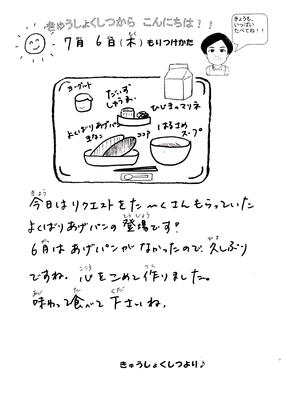 きゅうしょくしつから こんにちは!!
きょうも、
いっぱい
たべてね!!
7月 6日(木)もりつけかた
もく
ヨーグルト
だいず
しゅうまい
ひじきのマリネ
よくばりあげパン
きなこ
ココア
はるさめ
スープ
きょう
今日はリクエストをたーくさんもらっていた
とうじょう
よくばりあげパンの登場です!
がつ ひさ
6月はあげパンがなかったので、久しぶり
こころ つく
ですね。心をこめて作りました。
あじ た くだ
味わって食べて下さいね。
きゅうしょくしつより♪